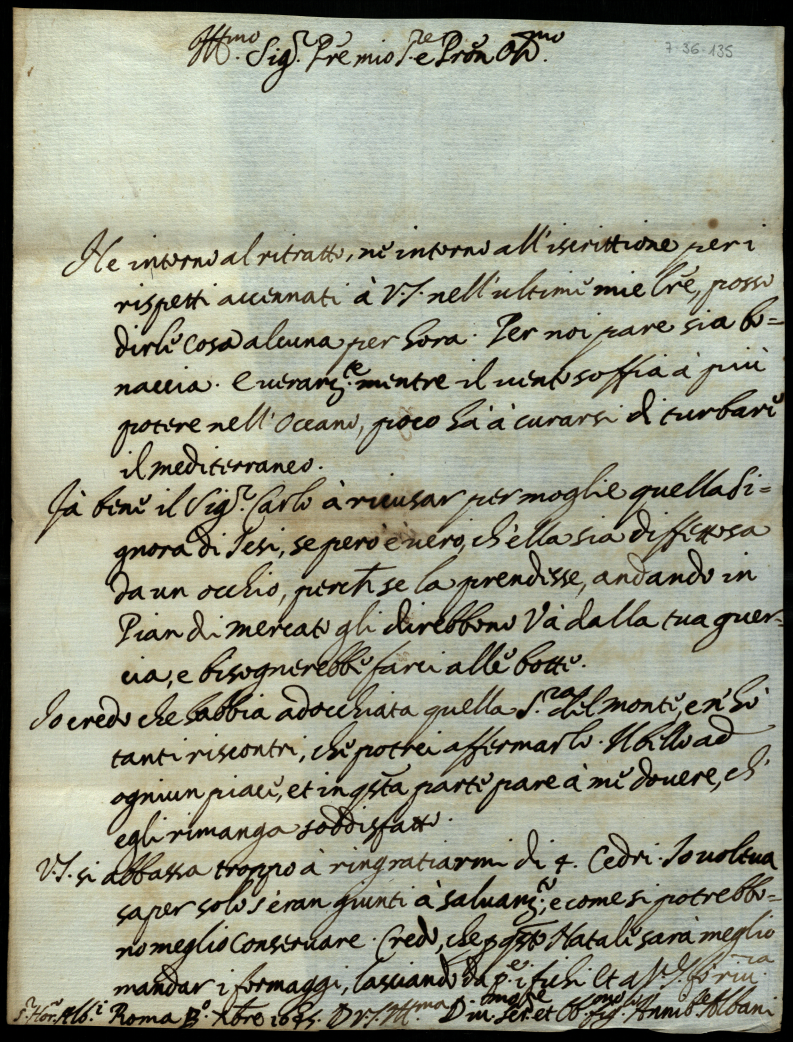 Ill.mo Sig.r P̃rẽ mio S.re e P̃ron Oss.mo
7-36-135
Ne intorno al ritratto, nè intorno all'iscrittione per i
rispetti accennati à V.S. nell'ultime mie l̃re, posso
dirle cosa alcuna per hora. Per noi pare sia bo=
naccia. E veram.te mentre il vento soffia à più
potere nell'Oceano, poco hà à curarsi di turbare
il mediterraneo.
Fà bene il Sig.r Carlo à ricusar per moglie quella Si=
gnora di Iesi, se però è vero, ch'ella sia diffettosa
da un occhio, perche se la prendisse, andando in
Pian di mercato gli direbbono Và dalla tua guer=
cia, e bisognerebbe farci alle botte.
Io credo che habbia adocchiata quella S.ra del monte, e n'hò
tanti riscontri, che potrei affermarlo. Il bello ad
ogniun piace, et in q̃sta parte pare à me dovere, ch'
egli rimanga soddisfatto.
V.S. si abbassa troppo à ringratiarmi di 4. Cedri. Io voleva
saper solo s'eran giunti à salvam.te, e come si potrebbo=
no meglio conservare. Credo, che p q̃sto Natale sarà meglio
mandar i formaggi, lasciando da p.e i fichi. Et a V.S.
S.r Hor. Alb.i Roma Xbre D V.S. Ill.ma Div. Ser. et Ob. fig. Annib.le Albani